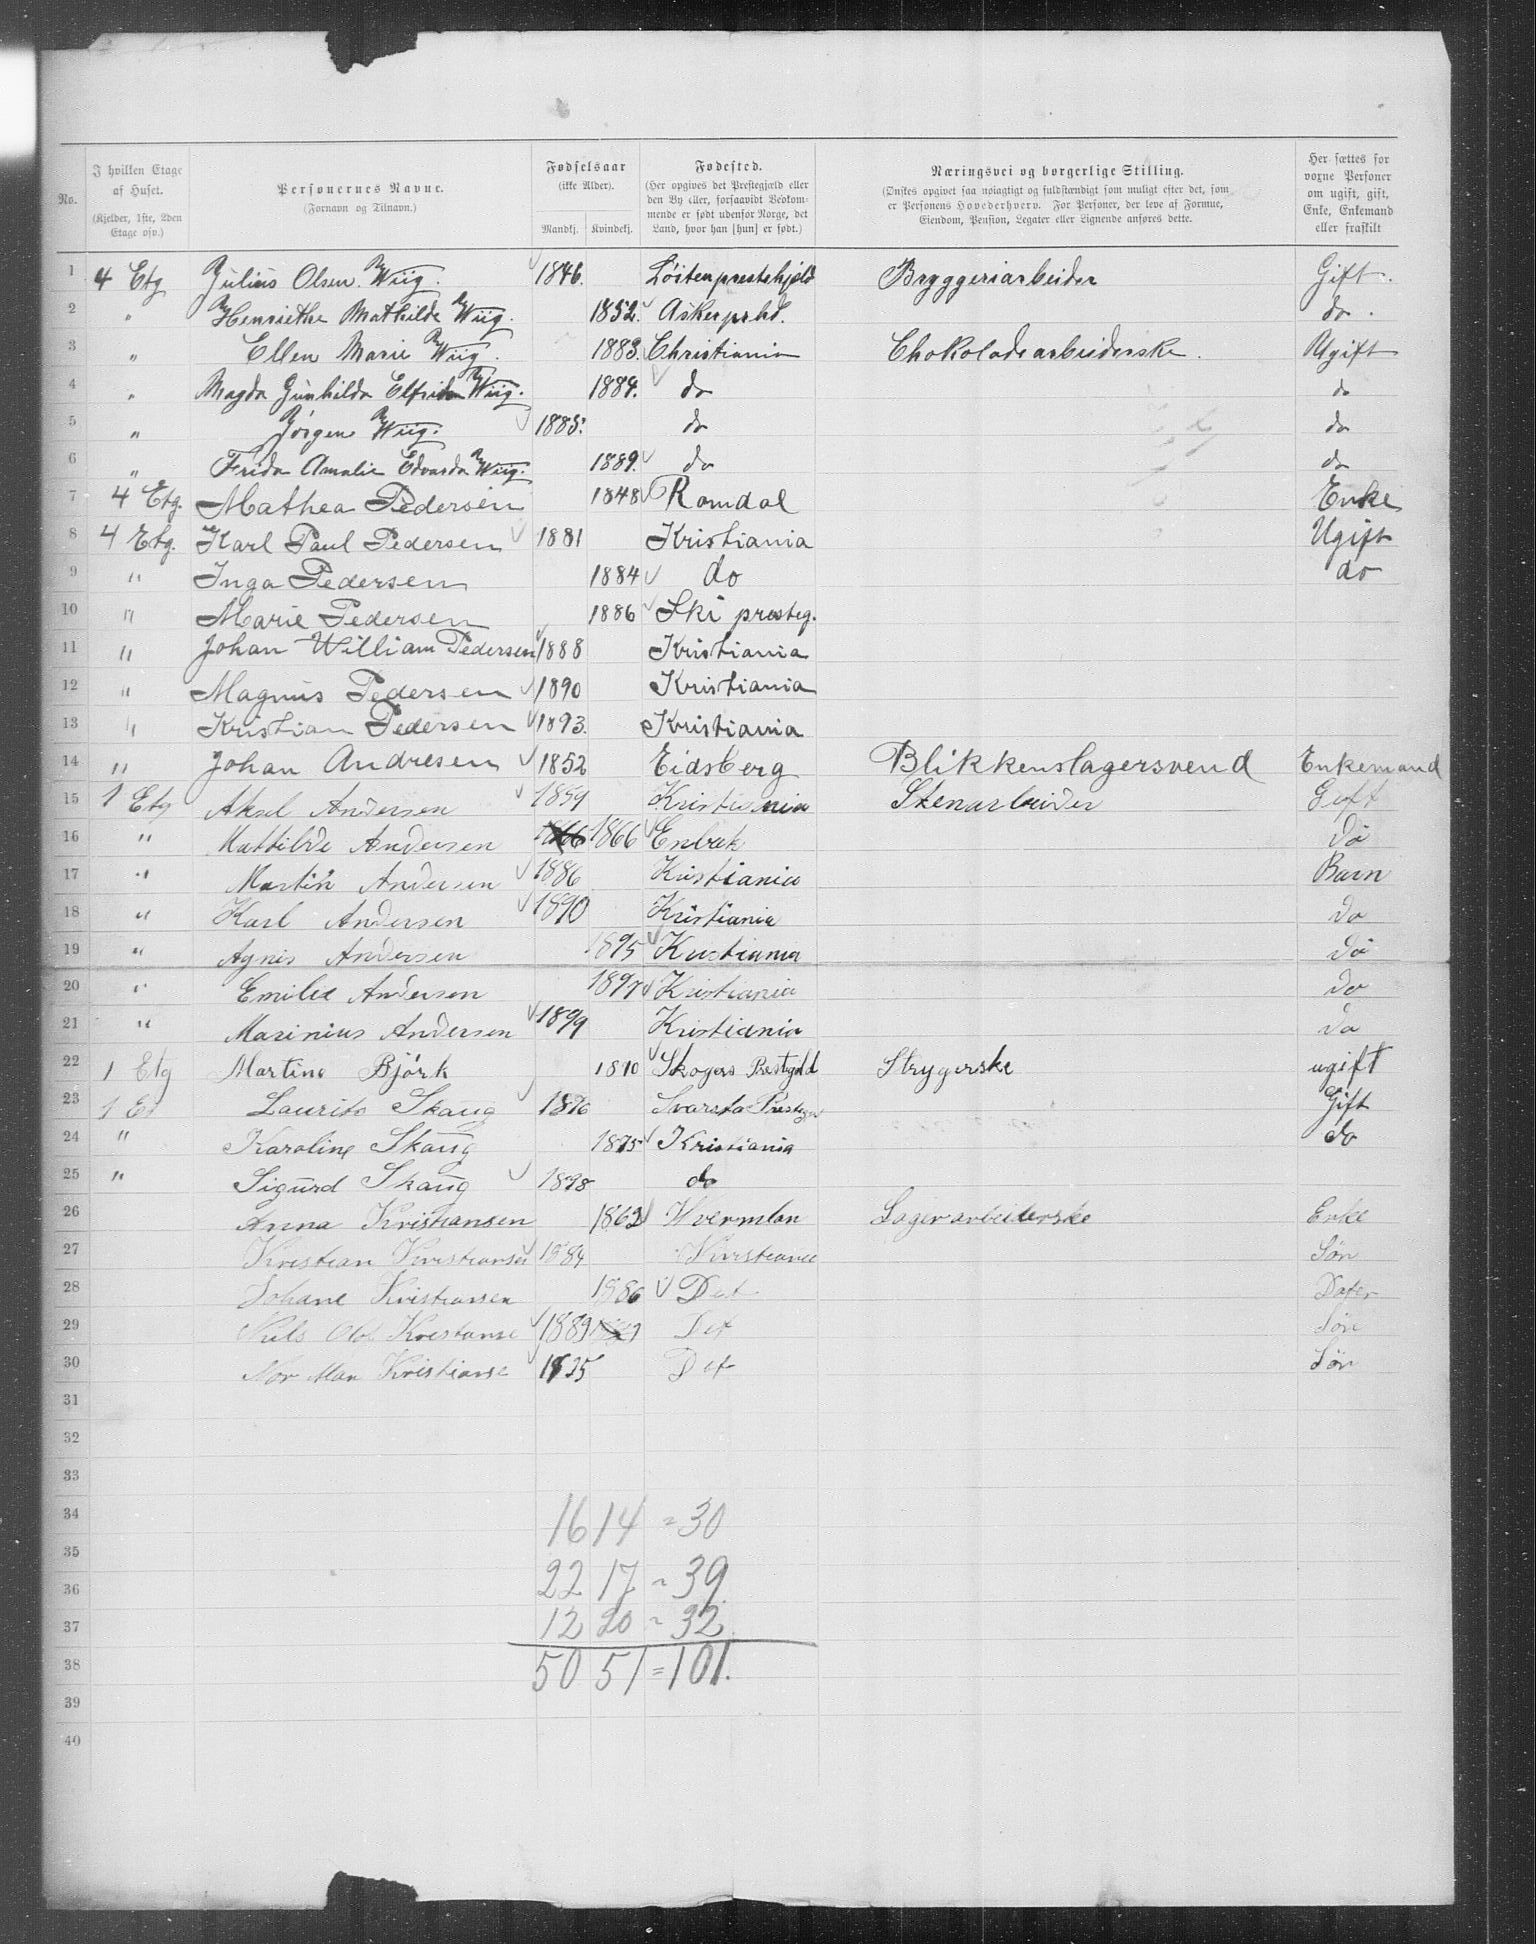 No. | I hvilken Etage af Huset. (Kjelder, 1ste, 2den Etage osv.) | Personernes Navne. (Fornavn og Tilnavn.) | Fødselsaar (ikke Alder). Mandkj. Kvindekj. | Fødested. (Her opgives det Prestegjæld eller den By eller, forsaavidt Vedkommende er født udenfor Norge, det Land, hvor han [hun] er født.) | Næringsvei og borgerlige Stilling. (Ønskes opgivet saa nøiagtigt og fuldstændigt som muligt efter det, som er Personens Hovederhverv. For Personer, der leve af Formue, Eiendom, Pension, Legater eller Lignende anføres dette. | Her sættes for voxne Personer om ugift, gift, Enke, Enkemand eller fraskilt
1 4 Etg Julius Olsen Wiig. 1846. Löitenprestehjeld Bryggeriarbeider Gift.
2 " Henriethe Mathilde Wiig. 1852. Askerprhd. do.
3 " Ellen Marie Wiig. 1883. Christiania Chokoladearbeiderske. Ugift
4 " Magda Gunhilda Elfrida Wiig. 1884. do do
5 " Jörgen Wiig. 1885. do do
6 " Frida Amalie Edvarda Wiig. 1889. do do
7 4 Etg. Mathea Pedersen 1848 Romdal Enke
8 4 Etg. Karl Paul Pedersen 1881 Kristiania Ugift
9 " Inga Pedersen 1884 do do
10 " Marie Pedersen 1886 Ski presteg.
11 " Johan William Pedersen 1888 Kristiania
12 " Magnus Pedersen 1890 Kristiania
13 " Kristian Pedersen 1893. Kristiania
14 " Johan Andresen 1852 Eidsberg Blikkenslagersvend Enkemand
15 1 Etg Aksel Andersen 1859 Kristiania Stenarbeider Gift
16 " Mattilde Andersen 1866 1866 Enbak do
17 " Martin Andersen 1886 Kristiania Barn
18 " Karl Andersen 1890 Kristiania do
19 " Agnes Andersen 1895 Kristiania do
20 " Emilie Andersen 1897 Kristiania do
21 " Marinius Andersen 1899 Kristiania do
22 1 Etg Martine Björk 1870 Skogers Prestgjld Strygerske ugift
23 1 Et Laurits Skaug 1876 Svarsta Gift
24 " Karoline Skaug 1875 Kristiania do
25 " Sigurd Skaug 1898 do
26 Anna Kristiansen 1862 Wvermlan Lagerarbeiderske Enke
27 Kristian Kristiansen 1884 Kristiania Søn
28 Johane Kristiansen 1886 Det Dater
29 Nils Olol Kristianse 1889 Det Søn
30 Kristianse Det Søn
31
32
33
34 16 14 = 30
35
36 22 17 = 39
37 12 20 = 32
38 50 51 = 101.
39
40